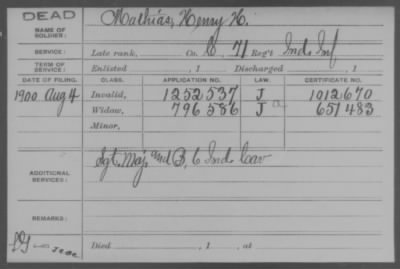 DEAD
NAME OF SOLDIER: Mathias, Henry H.
SERVICE: Late rank, Co. 71 Reg't Ind. Inf
TERM OF SERVICE: Enlisted , 1 Discharged , 1
DATE OF FILING. CLASS. APPLICATION NO. LAW. CERTIFICATE NO.
1900 Aug 4 Invalid, 1252,537 J 1012,670
Widow, 796,586 J a 651,483
Minor,
ADDITIONAL SERVICES: Sgt. Maj. and B, 6 Ind. Cav
REMARKS:
Died , 1 , at